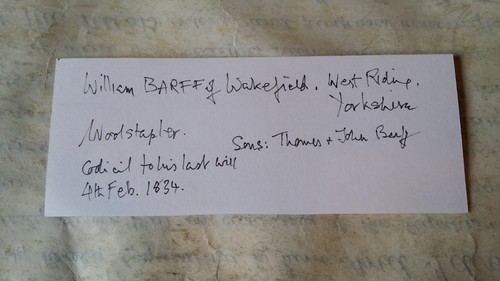 William BARFF of Wakefield. West Riding.
Yorkshire
Woolstapler.
Sons: Thomas + John Barff
Codicil to his last will
4th Feb. 1834.